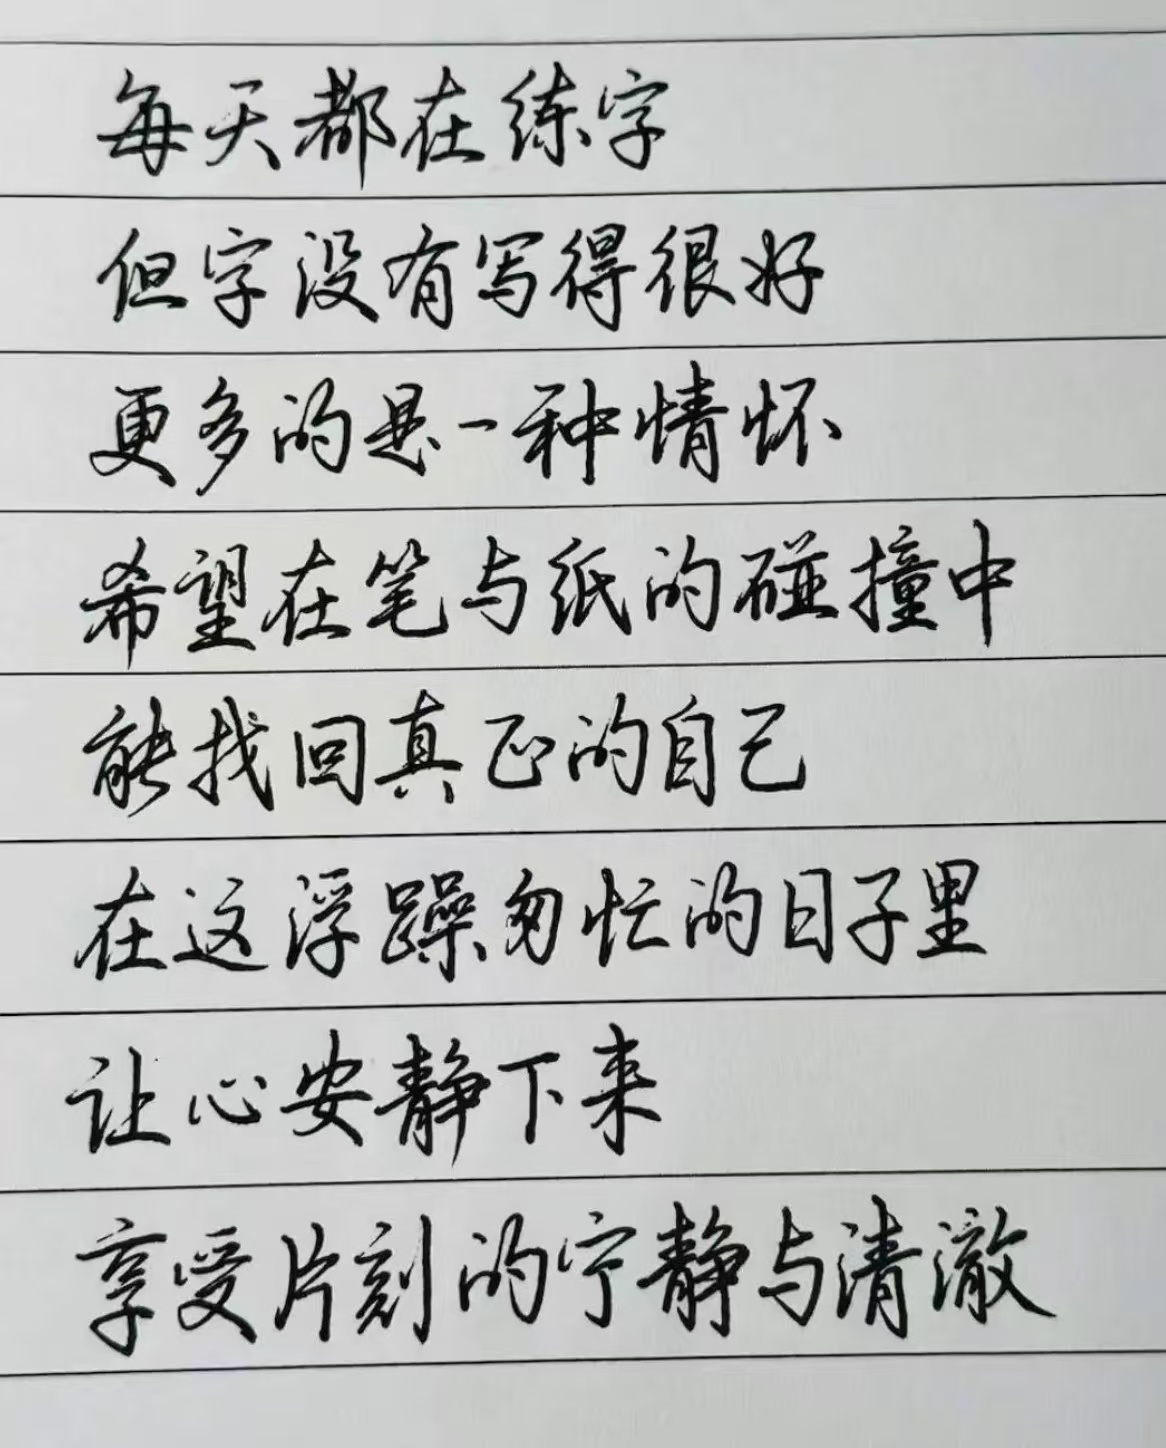 每天都在练字
但字没有写得很好
更多的是一种情怀
希望在笔与纸的碰撞中
能找回真正的自己
在这浮躁匆忙的日子里
让心安静下来
享受片刻的宁静与清澈